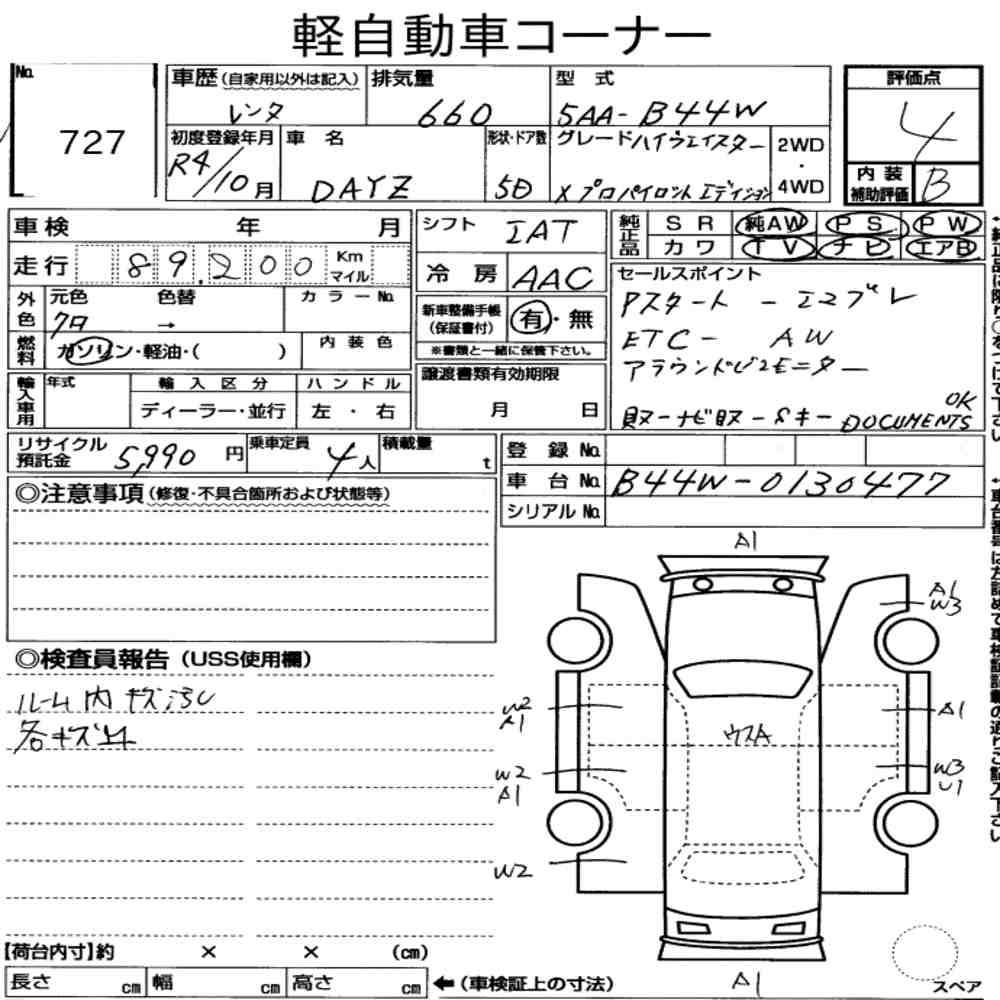 軽自動車コーナー
No.
727
車歴(自家用以外は記入)
レンタ
排気量
660
型式
5AA-B44W
評価点
4
初度登録年月
R4/10月
車名
DAYZ
形状・ドア数
5D
グレード ハイウェイスター
X プロパイロット エディション
2WD
・
4WD
内装
補助評価
B
車検 年 月
走行 89,200 Km
マイル
外色
元色
クロ
色替
→
カラーNo.
燃料
ガソリン・軽油・( )
内装色
輸入車用
年式
輸入区分
ディーラー・並行
ハンドル
左・右
シフト
IAT
冷房
AAC
新車整備手帳
(保証書付)
有・無
※書類と一緒に保管下さい。
譲渡書類有効期限
月 日
純正品
SR 純AW PS PW
カワ TV ナビ エアB
セールスポイント
Pスタート - エコブレ
ETC - AW
アラウンドビューモニター
OK
DOCUMENTS
リサイクル
預託金
5,990円
乗車定員
4人
積載量
t
登録No.
車台No.
B44W-0130477
シリアルNo.
◎注意事項(修復・不具合箇所および状態等)
◎検査員報告(USS使用欄)
ルーム内キズ汚レ
各キズ凹
A1
A1
W3
W2
A1
A1
ウスA
W2
A1
W3
U1
W2
A1
【荷台内寸】約 × × (cm)
長さ cm 幅 cm 高さ cm
←(車検証上の寸法)
スペア